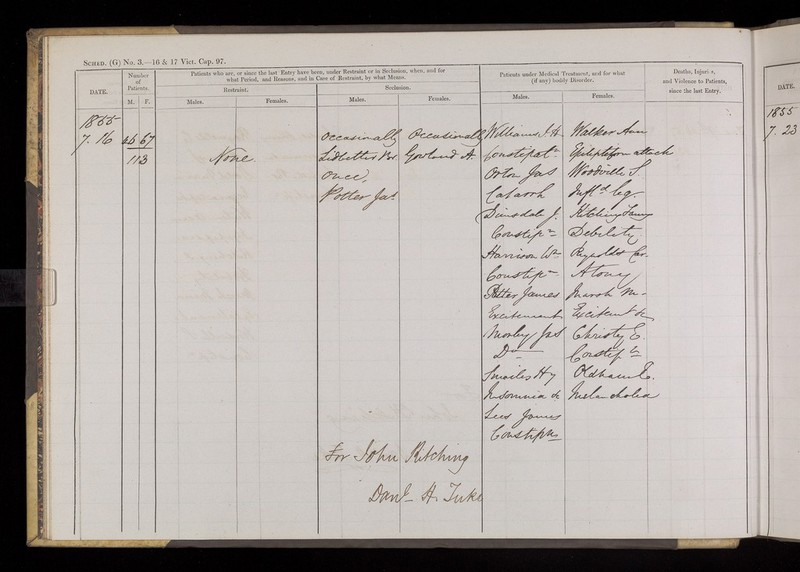 SCHED. (G) No. 3.—16 & 17 Vict. Cap. 97.
DATE.
Number of Patients.
M. F.
Patients who are, or since the last Entry have been, under Restraint or in Seclusion, when, and for what Period, and Reasons, and in Case of Restraint, by what Means.
Restraint.
Males. Females.
Seclusion.
Males. Females.
Patients under Medical Treatment, and for what (if any) bodily Disorder.
Males. Females.
Deaths, Injuries, and Violence to Patients, since the last Entry.
DATE.
1855
7. 16
46 67
113
None
Occasionally
Once
Potter Jas.
Occasionally
Gowland A.
Williams J. H.
Constipatn.
Orton Jas
Catarrh
Dinsdale J.
Constipn.
Harrison Wm
Constipn.
Potter James
Excitement
Morley Jas
Do
Smailes Hy
Insomnia &c
Lees James
Constipn
Walker Ann
Epileptiform attack
Woodville S.
Infld. leg.
Kitching Fanny
Debility
Reynolds Car.
Atony
Marsh M.
Excitemt &c
Christy E.
Constipn
Oldham E.
Melancholia
For John Kitching
Danl. H. Tuke
1855
7. 23